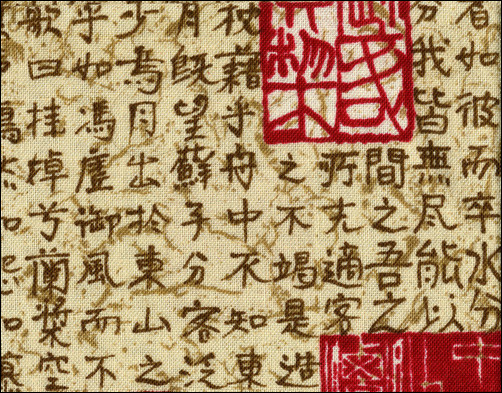 者如彼而卒水分
分我皆無尽能以
間之吾之
適客
之不竭是造
枕藉乎舟中不知東
月既望蘇子分客泛
少焉月出於東山之
乎如馮虛御風而不
歌曰桂棹兮蘭槳空